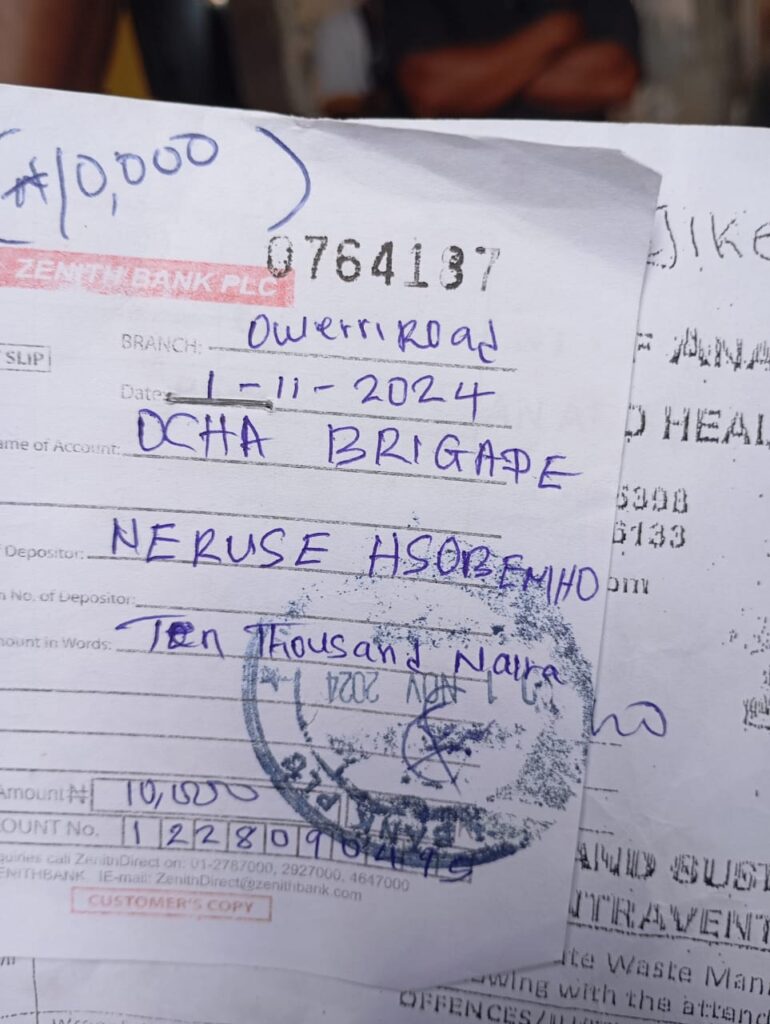 (₦10,000)
ZENITH BANK PLC
0764137
SLIP
BRANCH: Owerri Road
Date: 1-11-2024
ame of Account: OCHA BRIGADE
Depositor: NERUSE
No. of Depositor:
ount in Words: Ten Thousand Naira
01 NOV 2024
BANK PLC
Amount ₦ 10,000
OUNT No. 1228090499
quiries call ZenithDirect on: 01-2787000, 2927000, 4647000
ENITHBANK. IE-mail: ZenithDirect@zenithbank.com
CUSTOMER'S COPY
JIKE
F ANA
D HEAL
6398
6133
om
AND SUST
NTRAVENT
te Waste Man
wing with the attend
OFFENCES/